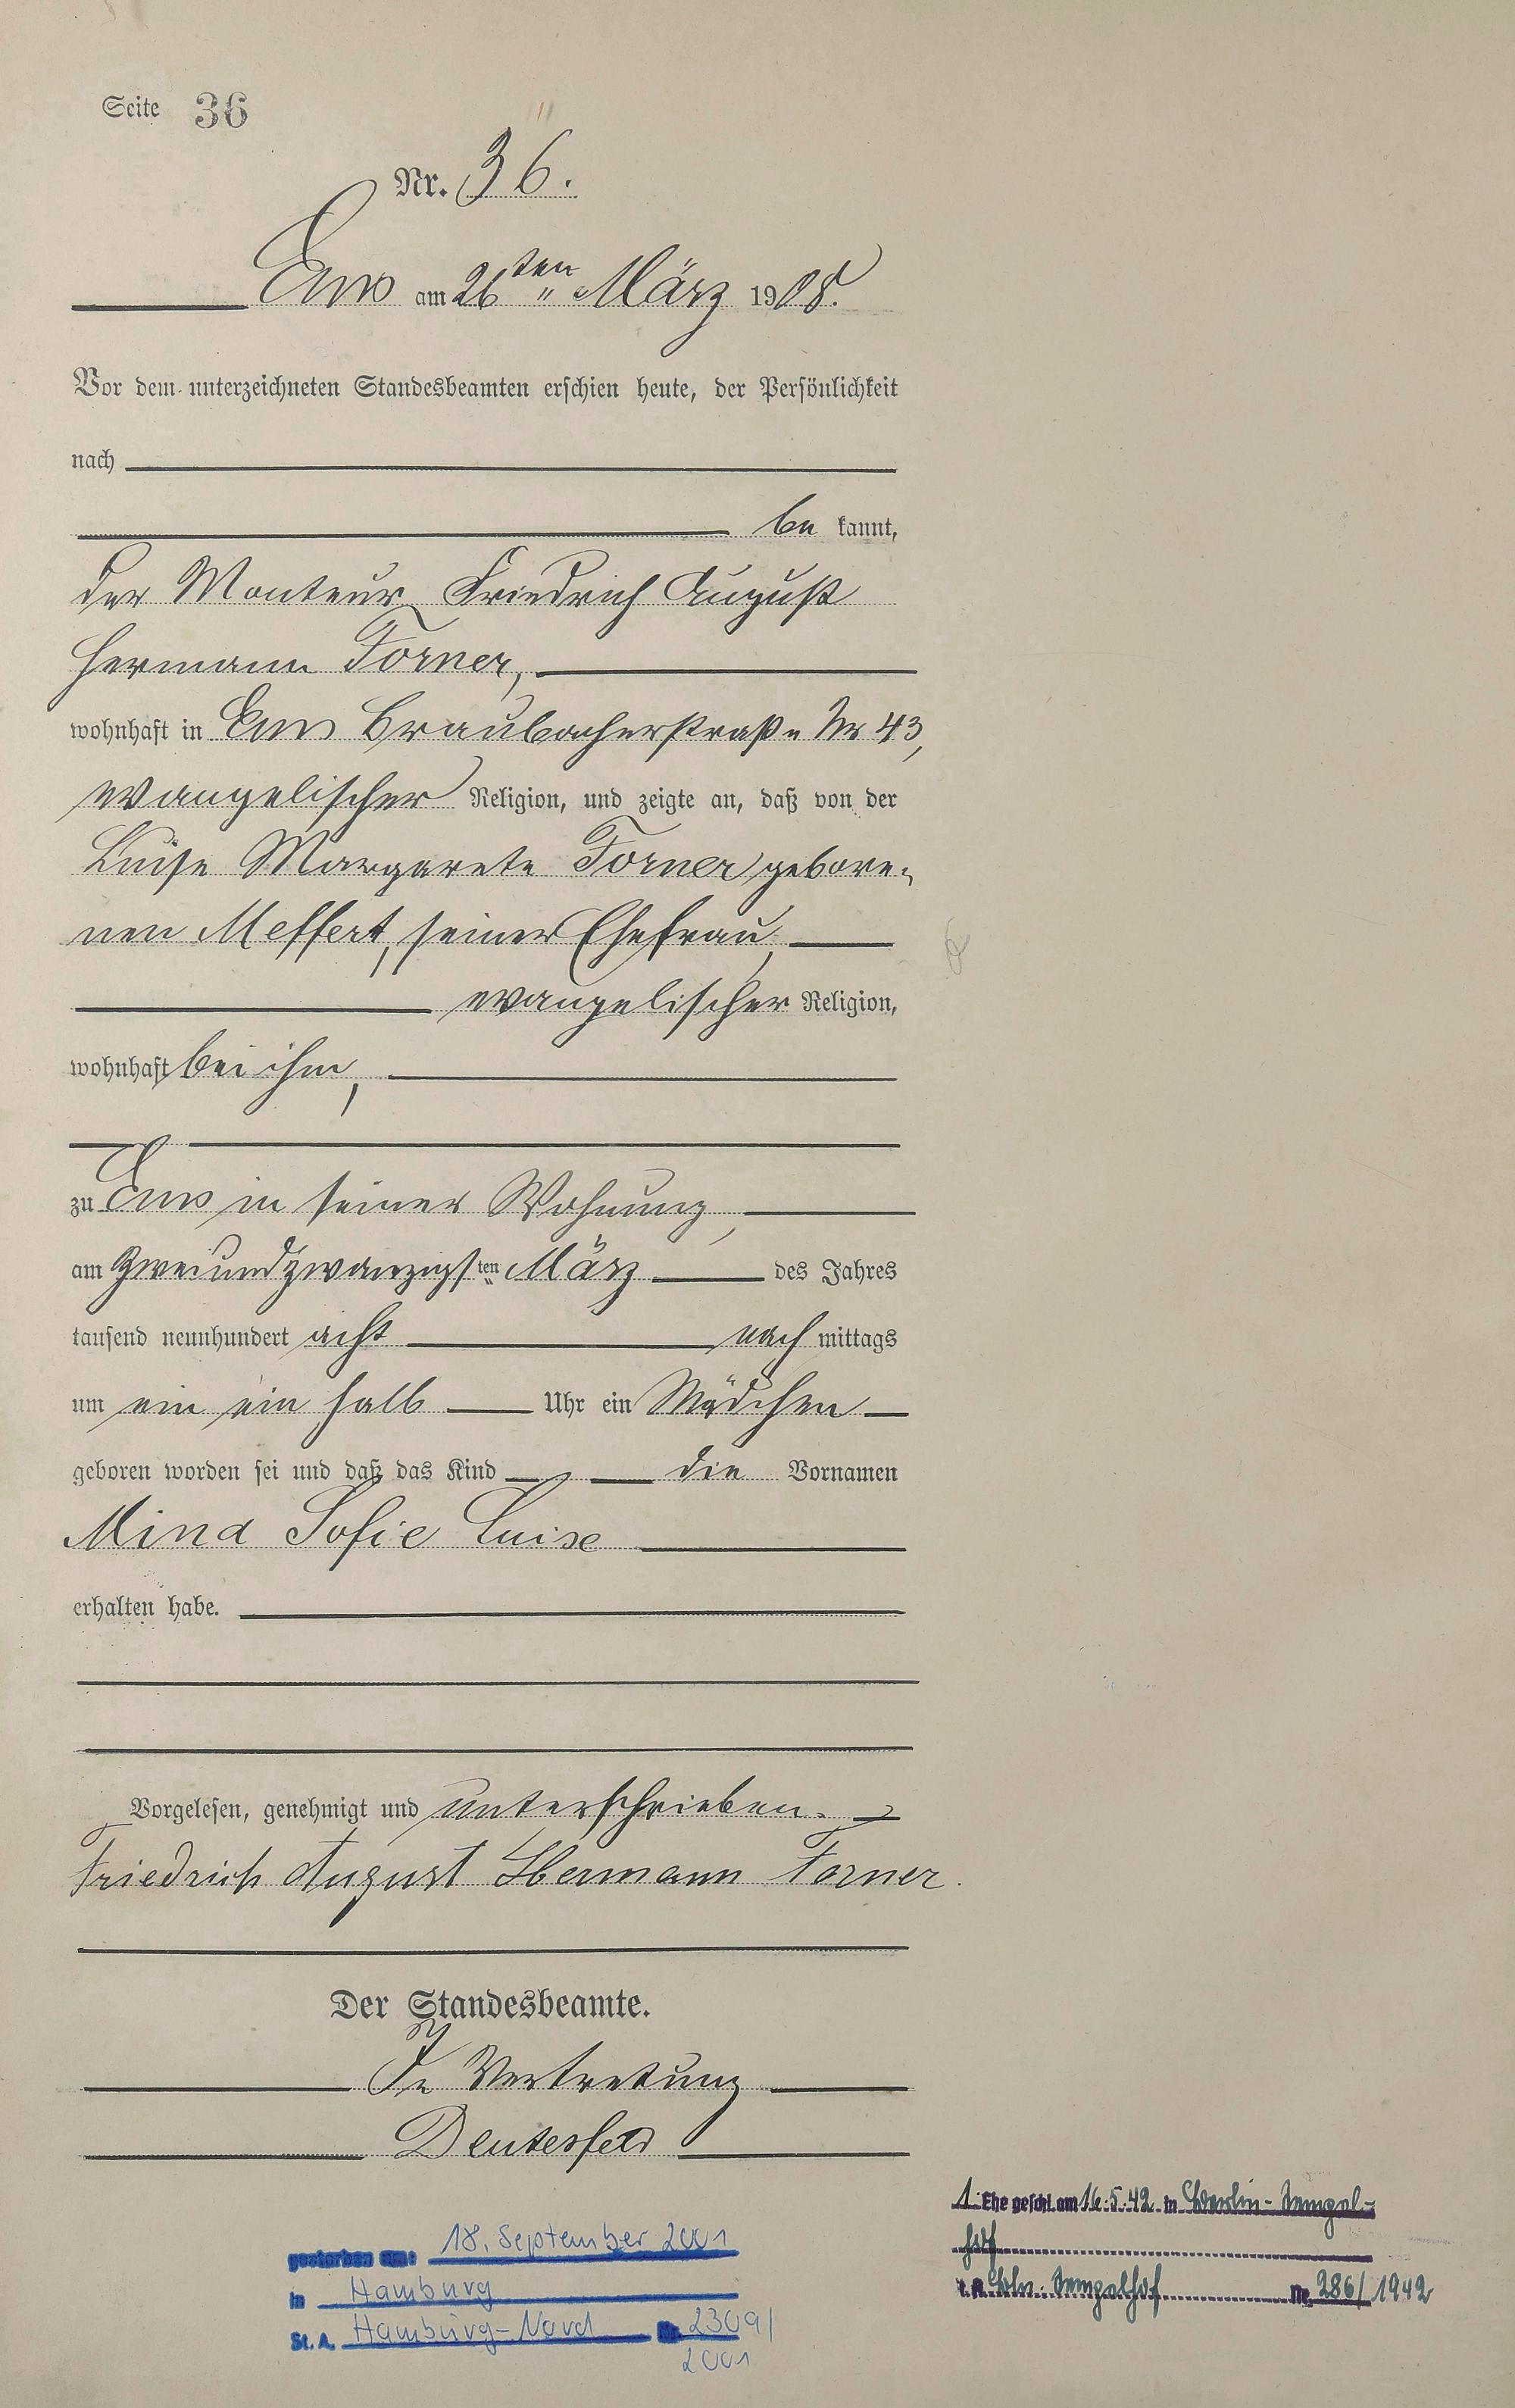 Seite 36
Nr. 36.
Ems am 26ten März 1908.
Vor dem unterzeichneten Standesbeamten erschien heute, der Persönlichkeit
nach
be kannt,
der Monteur Friedrich August
Hermann Forner,
wohnhaft in Ems Braubacherstraße Nr 43,
evangelischer Religion, und zeigte an, daß von der
Luise Margarete Forner gebore-
nen Meffert, seiner Ehefrau,
evangelischer Religion,
wohnhaft bei ihm,
zu Ems in seiner Wohnung,
am zweiundzwanzigsten März des Jahres
tausend neunhundert acht nach mittags
um ein ein halb Uhr ein Mädchen
geboren worden sei und daß das Kind die Vornamen
Mina Sofie Luise
erhalten habe.
Vorgelesen, genehmigt und unterschrieben.
Friedrich August Hermann Forner.
Der Standesbeamte.
In Vertretung
1. Ehe geschl. am 16.5.42 in Berlin-Tempel-
hof
t. A. Bln. Tempelhof Nr. 286/1942
gestorben am: 18. September 2001
in Hamburg
St. A. Hamburg-Nord Nr. 2309/
2001